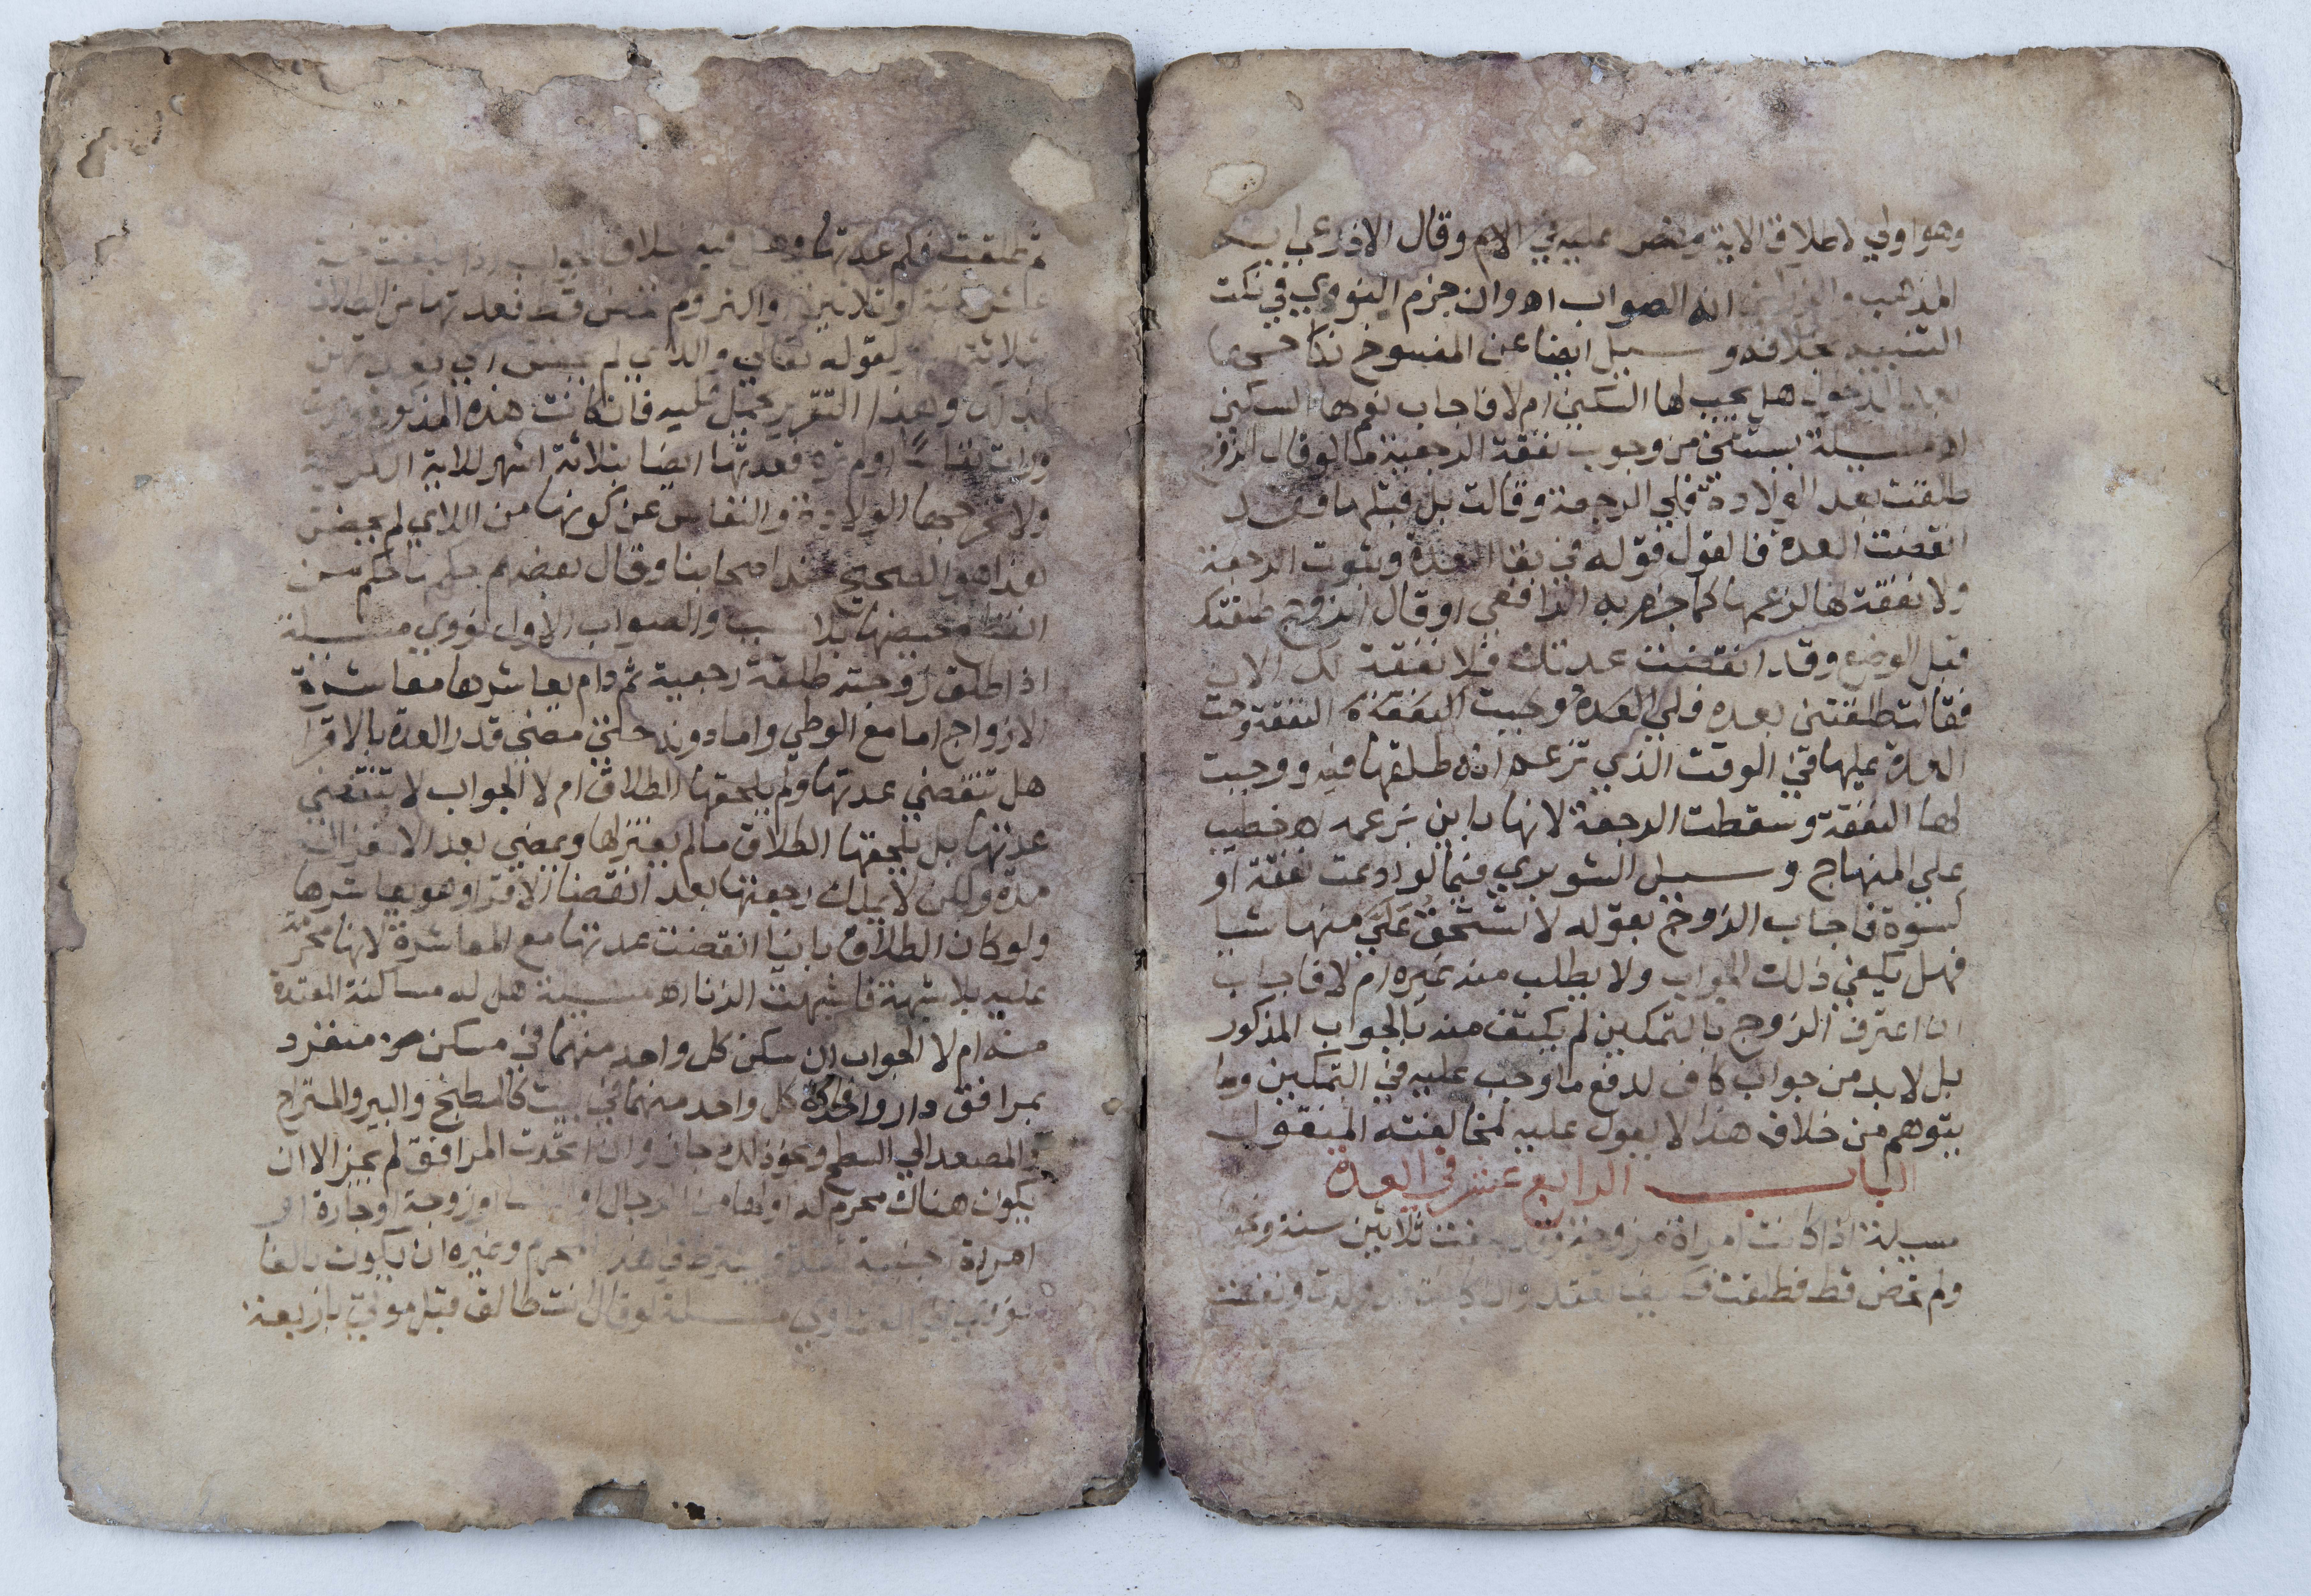 وهو اولي لاطلاق الاية ونص عليه في الام وقال الاذرعي
المذهب انه الصواب اه وان جزم النووي في نكت
التنبيه بخلافه وسيل ايضا عن المفسوخ نكاحها
بعد الدخول هل يجب لها السكني ام لا فاجاب نعم لها السكني
اه مسيلة يستثني من وجوب نفقة الرجعية ما لو قال الزوج
طلقت بعد الولادة فلي الرجعة وقالت بل قبلها وقد
انقضت العدة فالقول قوله في بقا العدة وثبوت الرجعة
ولا نفقة لها لزعمها كما جزم به الرافعي او قال الزوج طلقتك
قبل الوضع وقد انقضت عدتك فلا نفقة لك الان
فقالت طلقتني بعده فلي العدة وجبت النفقة النفقة وجت
العدة عليها في الوقت الذي تزعم انه طلقها فيه ووجبت
لها النفقة وسقطت الرجعة لانها باين بزعمه اه خطيب
علي المنهاج وسيل الشوبري فيما لو ادعت نفقة او
كسوة فاجاب الزوج بقوله لا تستحق علي منها شيا
فهل يكفي ذلك الجواب ولا يطلب منه غيره ام لا فاجاب
ان اعترف الزوج بالتمكين لم يكتف منه بالجواب المذكور
بل لا بد من جواب كاف لدفع ما وجب عليه في التمكين وما
يتوهم من خلاف هذا لا يعول عليه لمخالفته المنقول
الباب الرابع عشر في العدة
مسيلة اذا كانت امراة مزوجة وقد بلغت ثلاثين سنة ونحوها
ولم تحض قط فطلقت فكيف تعتد وان كانت قد ولدت ونفست
ثم طلقت فكم عدتها وهل فيه خلاف الجواب اذا بلغت خمسة
عشر سنة او ثلاثين او اكثر ولم تحض قط فعدتها من الطلاق
ثلاثة اشهر لقوله تعالي واللاي لم يحضن اي فعدتهن
كذلك وهذا التقرير فان كانت هذه المذكورة ولدت
ورات نفاسا او لم تره فعدتها ايضا بثلاثة اشهر للاية الكريمة
ولا تخرجها الولادة والنفاس عن كونها من اللاي لم يحضن
هذا هو الصحيح عند اصحابنا وقال بعضهم حكمها حكم من
انقطع حيضها بلا سبب والصواب الاول نووي مسيلة
اذا طلق زوجته طلقة رجعية ثم دام يعاشرها معاشرة
الازواج اما مع الوطي واما دونه حتي مضي قدر العدة بالاقرا
هل تنقضي عدتها ولم يلحقها الطلاق ام لا الجواب لا تنقضي
عدتها بل يلحقها الطلاق ما لم يعتزلها ويمضي بعد الاعتزال
مدة ولكن لا يملك رجعتها بعد انقضا الاقرا وهو يعاشرها
ولو كان الطلاق باينا انقضت عدتها مع المعاشرة لانها محرمة
عليه بلا شبهة فاشبهت الزنا اه مسيلة هل له مساكنة المعتدة
منه ام لا الجواب ان سكن كل واحد منهما في مسكن منفرد
بمرافق دار واحدة كل واحد منهما في بيت كالمطبخ والبير والمستراح
والمصعد الي السطح ونحو ذلك جاز وان اتحدت المرافق لم يجز الا ان
يكون هناك محرم له او لها من الرجال او النسا او زوجة او جارة او
امراة اجنبية ثقة ويشترط في هذا المحرم وغيره ان يكون بالغا
نووي في الفتاوي مسيلة لو قال انت طالق قبل موتي باربعة